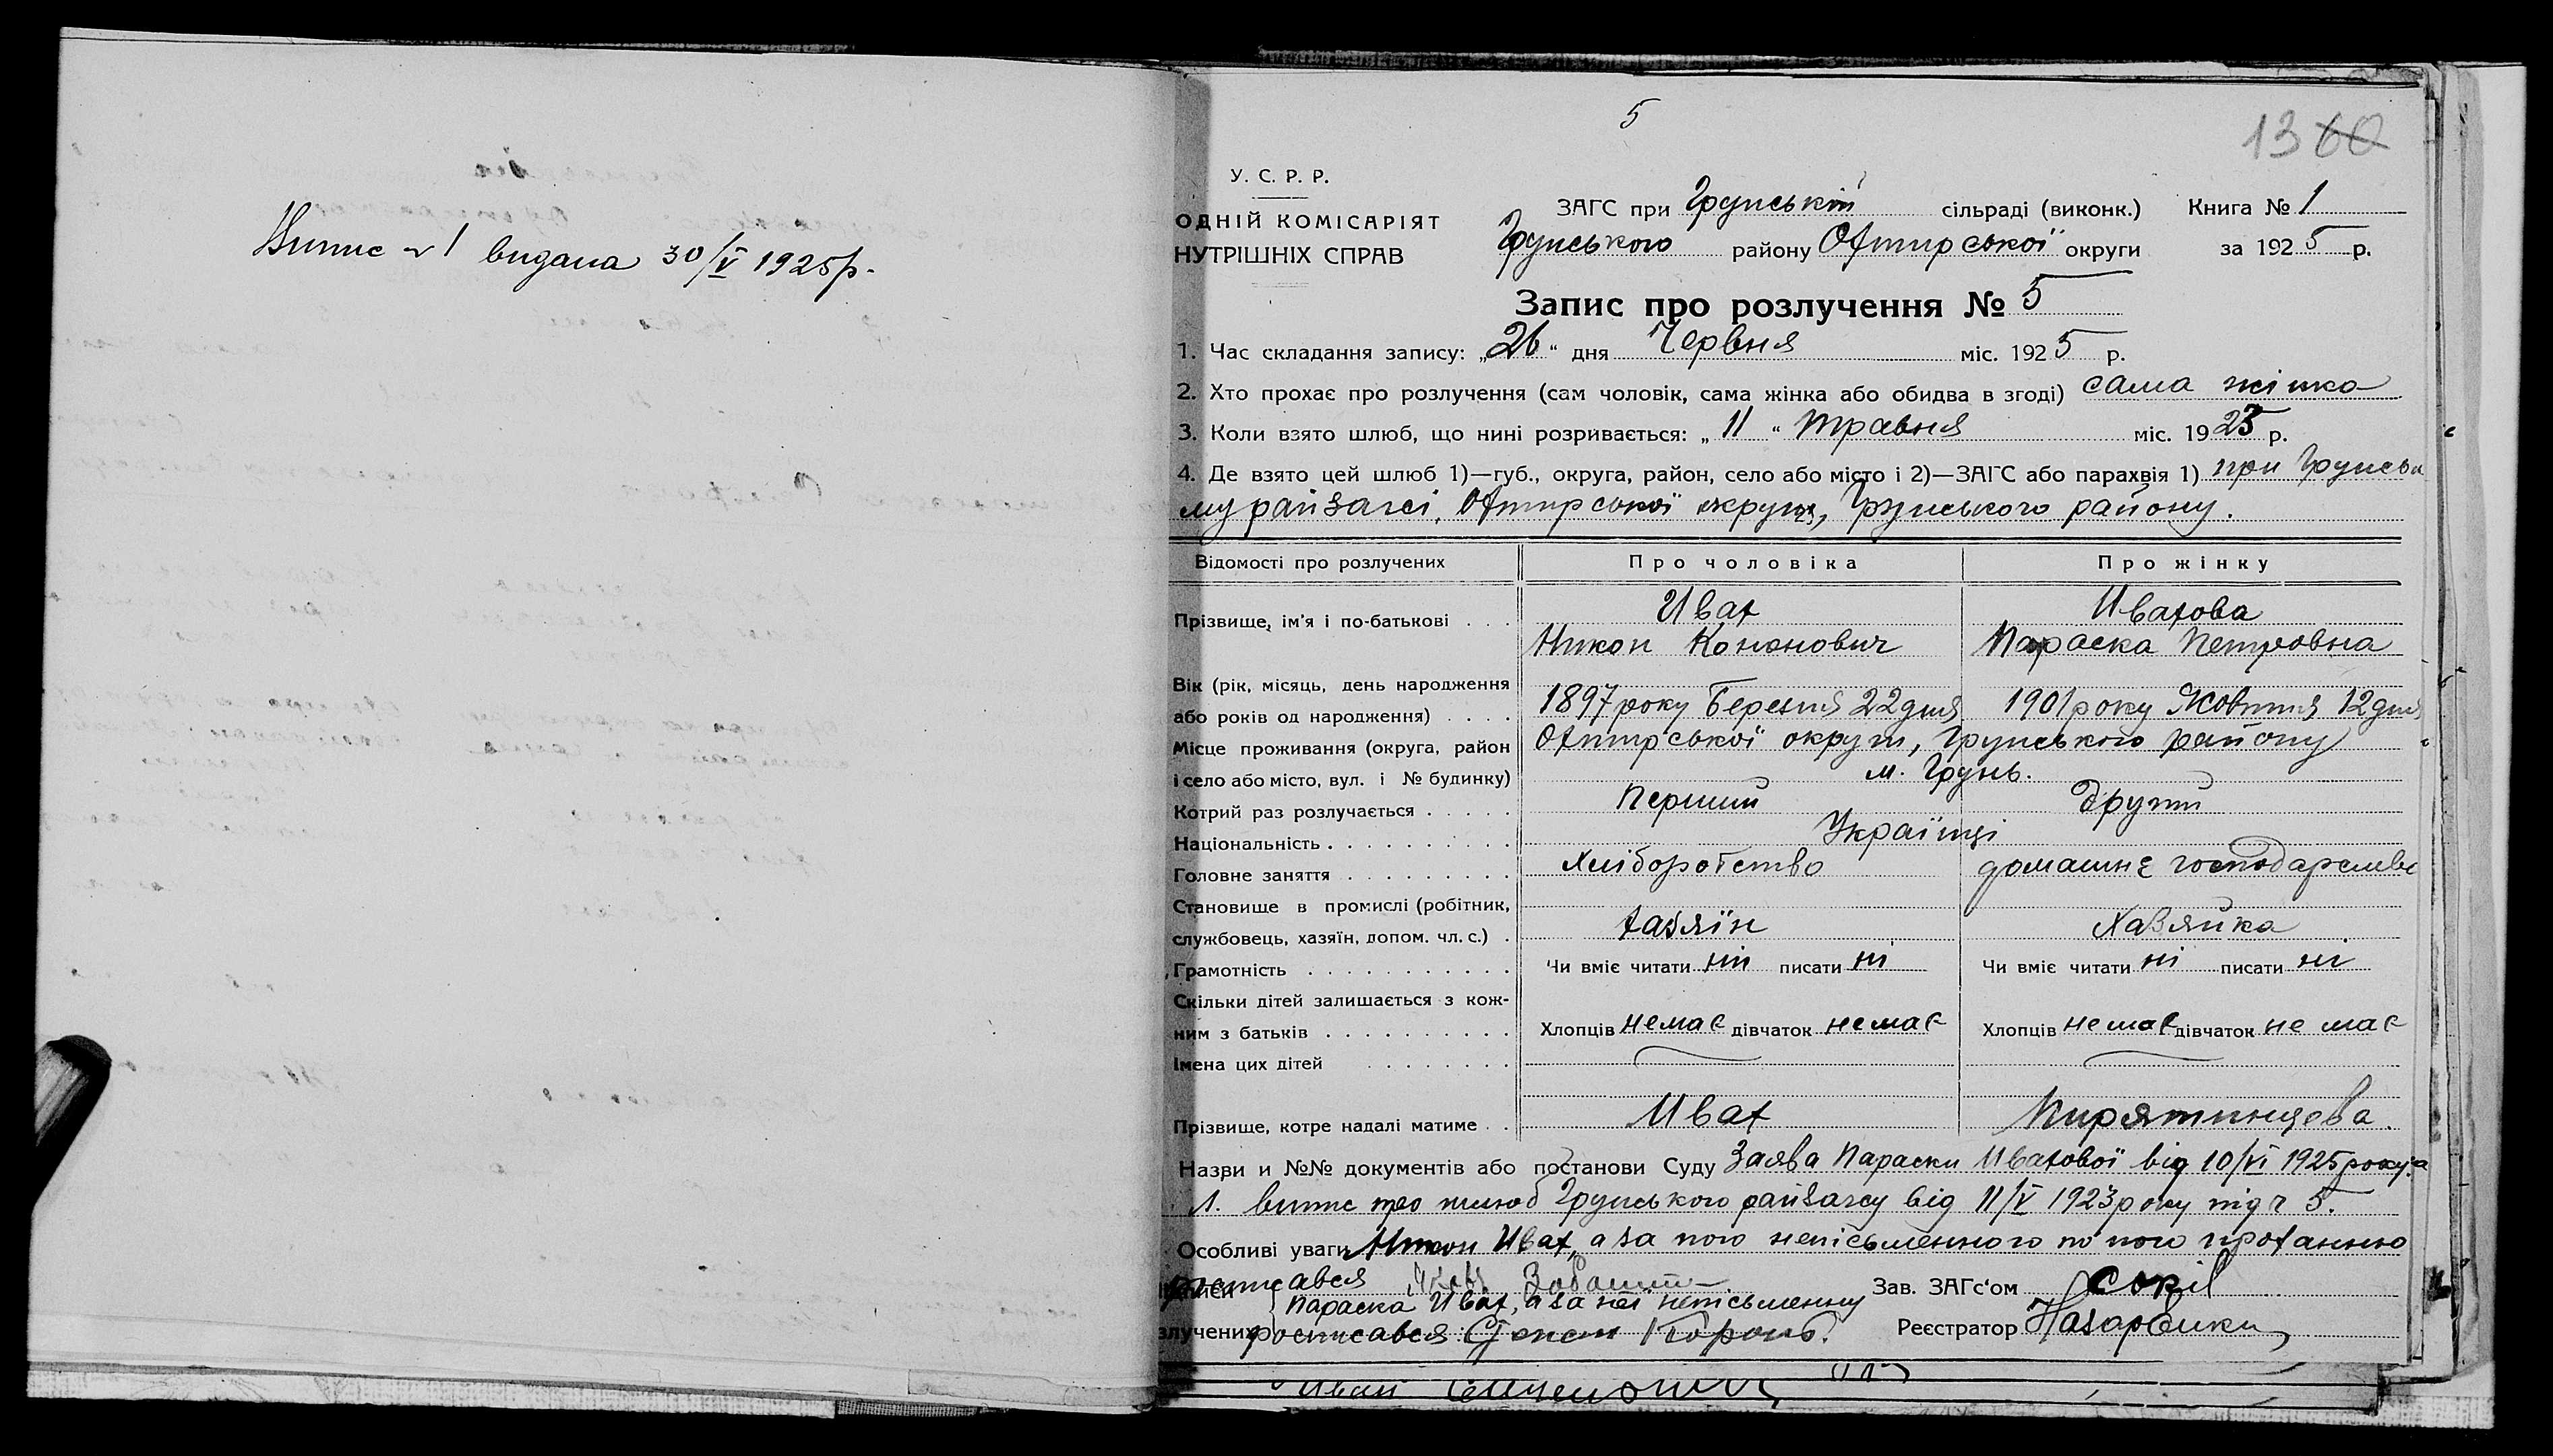 Випис № 1 видана 30/V 1925р.
5
13 60
У. С. Р. Р.
ОДНІЙ КОМІСАРІЯТ
НУТРІШНІХ СПРАВ
ЗАГС при Грунській сільраді (виконк.) Книга № 1
Грунського району Охтирської округи за 1925 р.
Запис про розлучення № 5
1. Час складання запису: „26“ дня Червня міс. 1925 р.
2. Хто прохає про розлучення (сам чоловік, сама жінка або обидва в згоді) сама жінка
3. Коли взято шлюб, що нині розривається: „11“ травня міс. 1923 р.
4. Де взято цей шлюб 1)—губ., округа, район, село або місто і 2)—ЗАГС або парахвія 1) при Грунсько
му райзагсі, Охтирської округи, Грунського району.
Відомості про розлучених Про чоловіка Про жінку
Ивах Ивахова
Прізвище, ім'я і по-батькові
Никон Кононович Параска Петровна
Вік (рік, місяць, день народження
або років од народження) 1897 року Березня 22 дня 1901 року Жовтня 12 дня
Місце проживання (округа, район Охтирської округи, Грунського району
і село або місто, вул. і № будинку) м. Грунь.
Котрий раз розлучається Перший другий
Національність Українці
Головне заняття Хліборобство домашнє господарство
Становище в промислі (робітник,
службовець, хазяїн, допом. чл. с.) хазяїн хазяйка
Грамотність Чи вміє читати ні писати ні Чи вміє читати ні писати ні
Скільки дітей залишається з кож-
ним з батьків Хлопців немає дівчаток немає Хлопців немає дівчаток не має
Імена цих дітей
Прізвище, котре надалі матиме Ивах Пирятинцева.
Назви и №№ документів або постанови Суду Заява Параски Ивахової від 10/VI 1925 року а
1. випис про шлюб Грунського райзагсу від 11/V 1923 року під ч 5.
Особливі уваги Никон Ивах, а за його неписьменного по його проханню
росписався Зав. ЗАГс'ом Сокіл
Параска Ивах, а за неї неписьменну
злучених росписався Реєстратор Назаренко
Иван